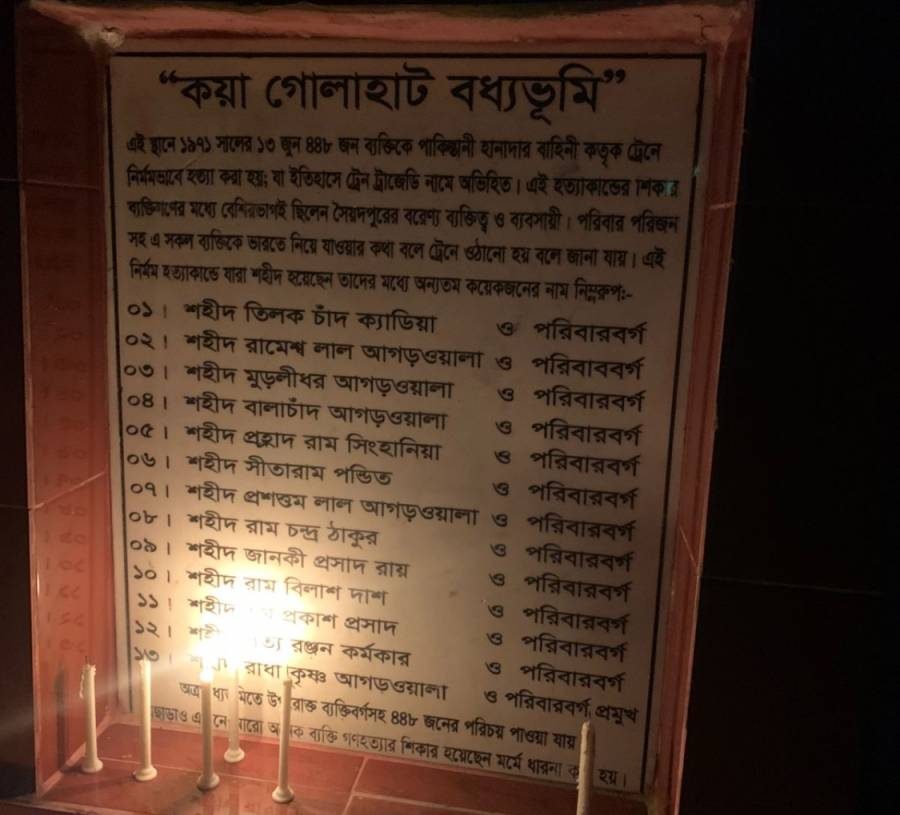 “কয়া গোলাহাট বধ্যভূমি”
এই স্থানে ১৯৭১ সালের ১৩ জুন ৪৪৮ জন ব্যক্তিকে পাকিস্তানী হানাদার বাহিনী কতৃক ট্রেনে
নির্মমভাবে হত্যা করা হয়; যা ইতিহাসে ট্রেন ট্রাজেডি নামে অভিহিত। এই হত্যাকান্ডের শিকার
ব্যক্তিগণের মধ্যে বেশিরভাগই ছিলেন সৈয়দপুরের বরেণ্য ব্যক্তিত্ব ও ব্যবসায়ী। পরিবার পরিজন
সহ এ সকল ব্যক্তিকে ভারতে নিয়ে যাওয়ার কথা বলে ট্রেনে ওঠানো হয় বলে জানা যায়। এই
নির্মম হত্যাকান্ডে যারা শহীদ হয়েছেন তাদের মধ্যে অন্যতম কয়েকজনের নাম নিম্নরুপ:-
০১। শহীদ তিলক চাঁদ ক্যাডিয়া ও পরিবারবর্গ
০২। শহীদ রামেশ্ব লাল আগড়ওয়ালা ও পরিবাববর্গ
০৩। শহীদ মুড়লীধর আগড়ওয়ালা ও পরিবারবর্গ
০৪। শহীদ বালাচাঁদ আগড়ওয়ালা ও পরিবারবর্গ
০৫। শহীদ প্রহ্লাদ রাম সিংহানিয়া ও পরিবারবর্গ
০৬। শহীদ সীতারাম পন্ডিত ও পরিবারবর্গ
০৭। শহীদ লাল আগড়ওয়ালা ও পরিবারবর্গ
০৮। শহীদ রাম চন্দ্র ঠাকুর ও পরিবারবর্গ
০৯। শহীদ জানকী প্রসাদ রায় ও পরিবারবর্গ
১০। শহীদ রাম বিলাশ দাশ ও পরিবারবর্গ
১১। শহীদ প্রকাশ প্রসাদ ও পরিবারবর্গ
১২। রঞ্জন কর্মকার ও পরিবারবর্গ
১৩। রাধা কৃষ্ণ আগড়ওয়ালা ও পরিবারবর্গ প্রমুখ
ব্যক্তিবর্গসহ ৪৪৮ জনের পরিচয় পাওয়া যায়
ব্যক্তি গণহত্যার শিকার হয়েছেন মর্মে ধারনা হয়।